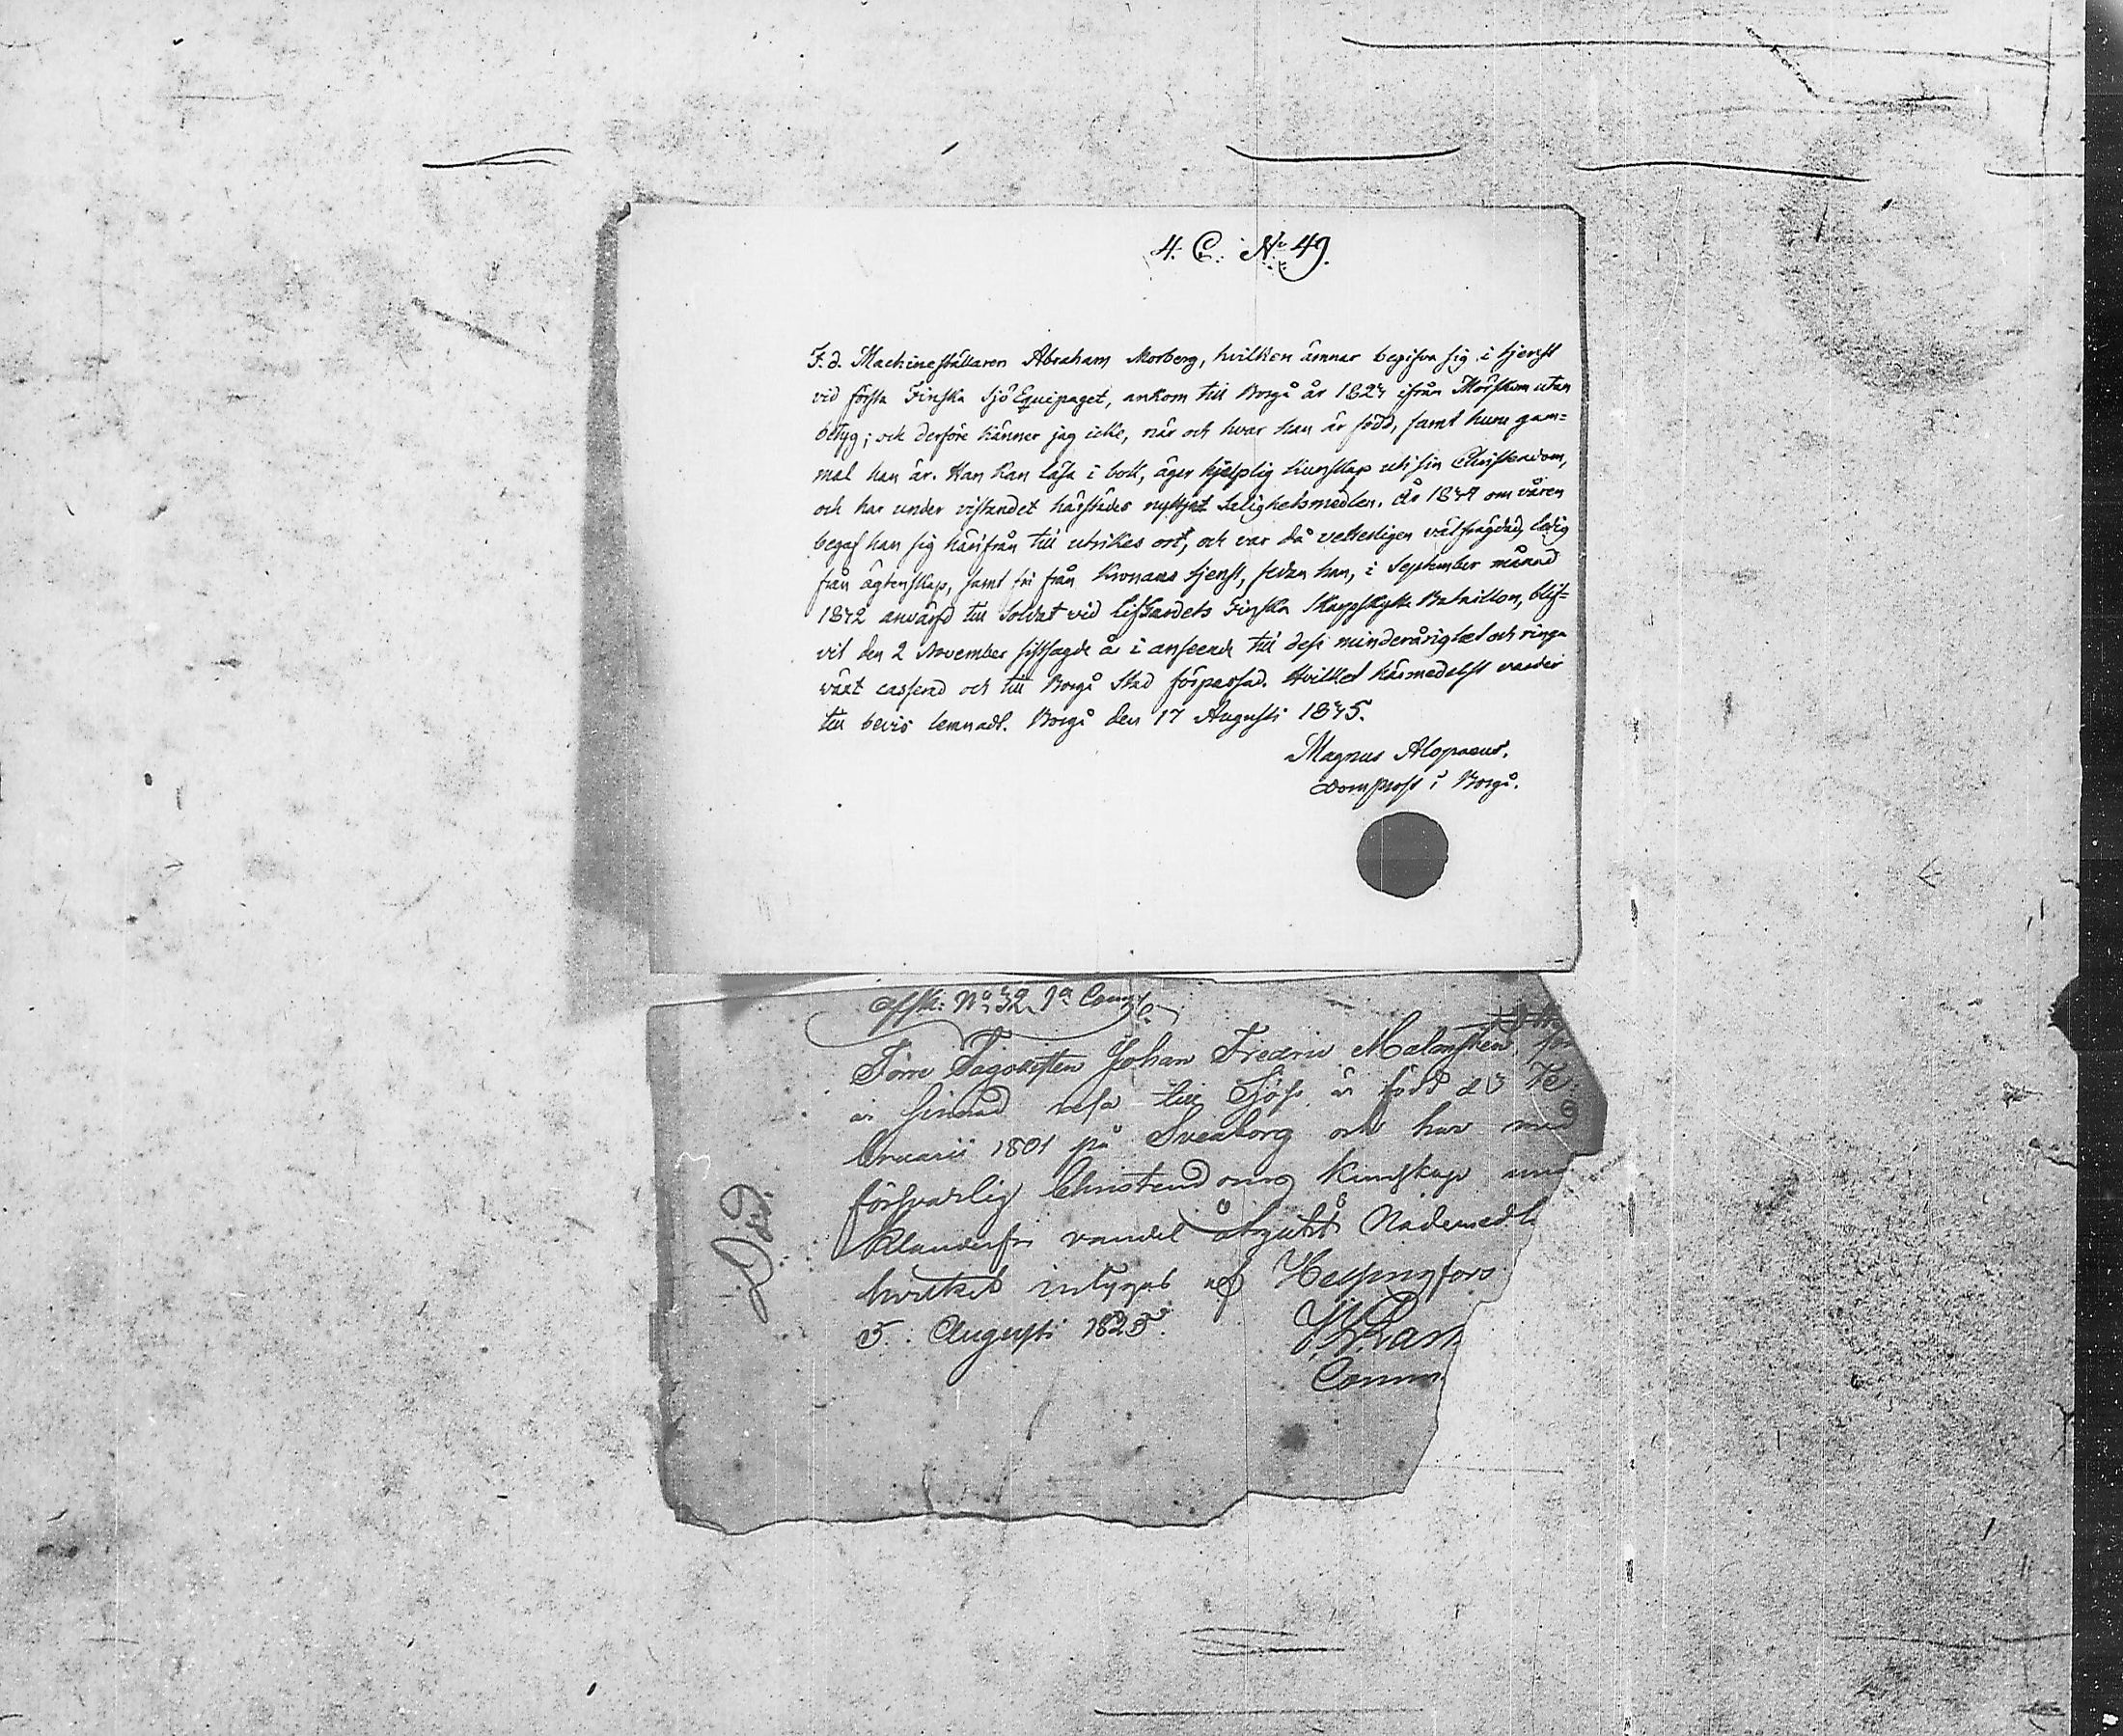 4. C. No 49.
F. d. Machineställaren Abraham Morberg, hvilken ämnar begifva sig i tjenst
vid första Finska Sjö Equipaget, ankom till Borgå år 1827 ifrån Mörskom utan
betyg; och derföre känner jag icke, när och hvar han är född, samt huru gam=
mal han är. Han kan läsa i bok, äger hjelplig kunskap uti sin Christendom,
och har under vistandet härstädes nyttjat Salighetsmedlen. År 1844 om våren
begaf han sig härifrån till utrikes ort, och var då vetterligen välfrägdad, ledig
från ägtenskap, samt fri från Kronans tjenst, sedan han, i September månad
1842 anvärfd till Soldat vid LifGardets Finska Skarpskytte Bataillon, blif=
vit den 2 November sistsagde år i anseende till dess minderårighet och ringa
växt casserad och till Borgå Stad förpassad. Hvilket härmedelst varder
till bevis lemnadt. Borgå den 17 Augusti 1845.
Magnus Alopaeus.
Domprost i Borgå.
Afsk: No 32 Comp
Förre Johan Fredric Malmsten, som
är sinnad resa till Sjös är född d 3 Fe
bruarii 1801 på Sveaborg och har med
försvarlig Christendoms kunskap och
klanderfri vandel åtnjutit Nådemedl
hvilket intygas af Helsingfors
5. Augusti 1825.
Comm
Död.